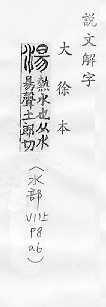 説文解字
大徐本
湯 熱水也从水
昜聲土郎切
(水部
VII上
P8
a6)